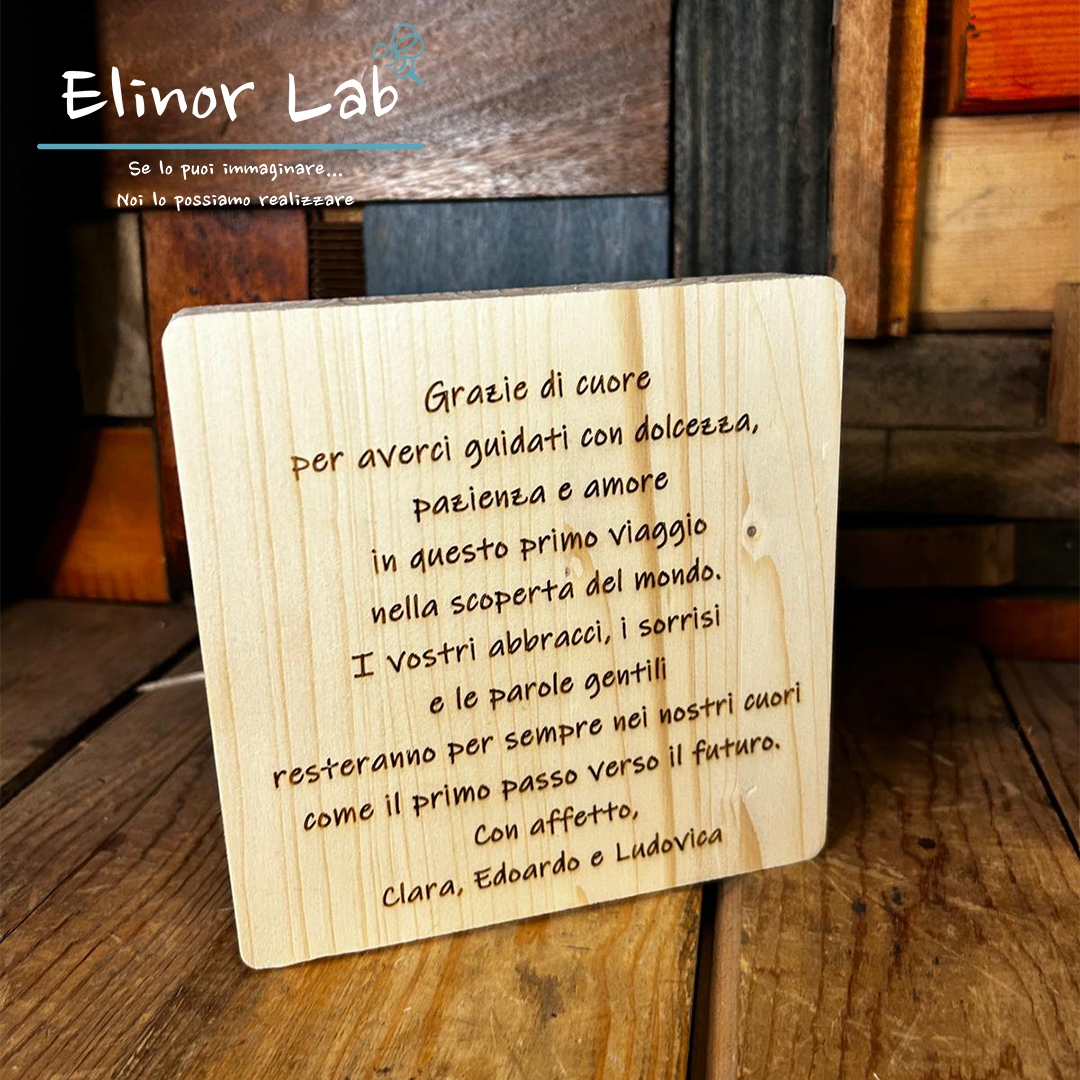 Elinor Lab
Se lo puoi immaginare...
Noi lo possiamo realizzare
Grazie di cuore
per averci guidati con dolcezza,
pazienza e amore
in questo primo viaggio
nella scoperta del mondo.
I vostri abbracci, i sorrisi
e le parole gentili
resteranno per sempre nei nostri cuori
come il primo passo verso il futuro.
Con affetto,
Clara, Edoardo e Ludovica